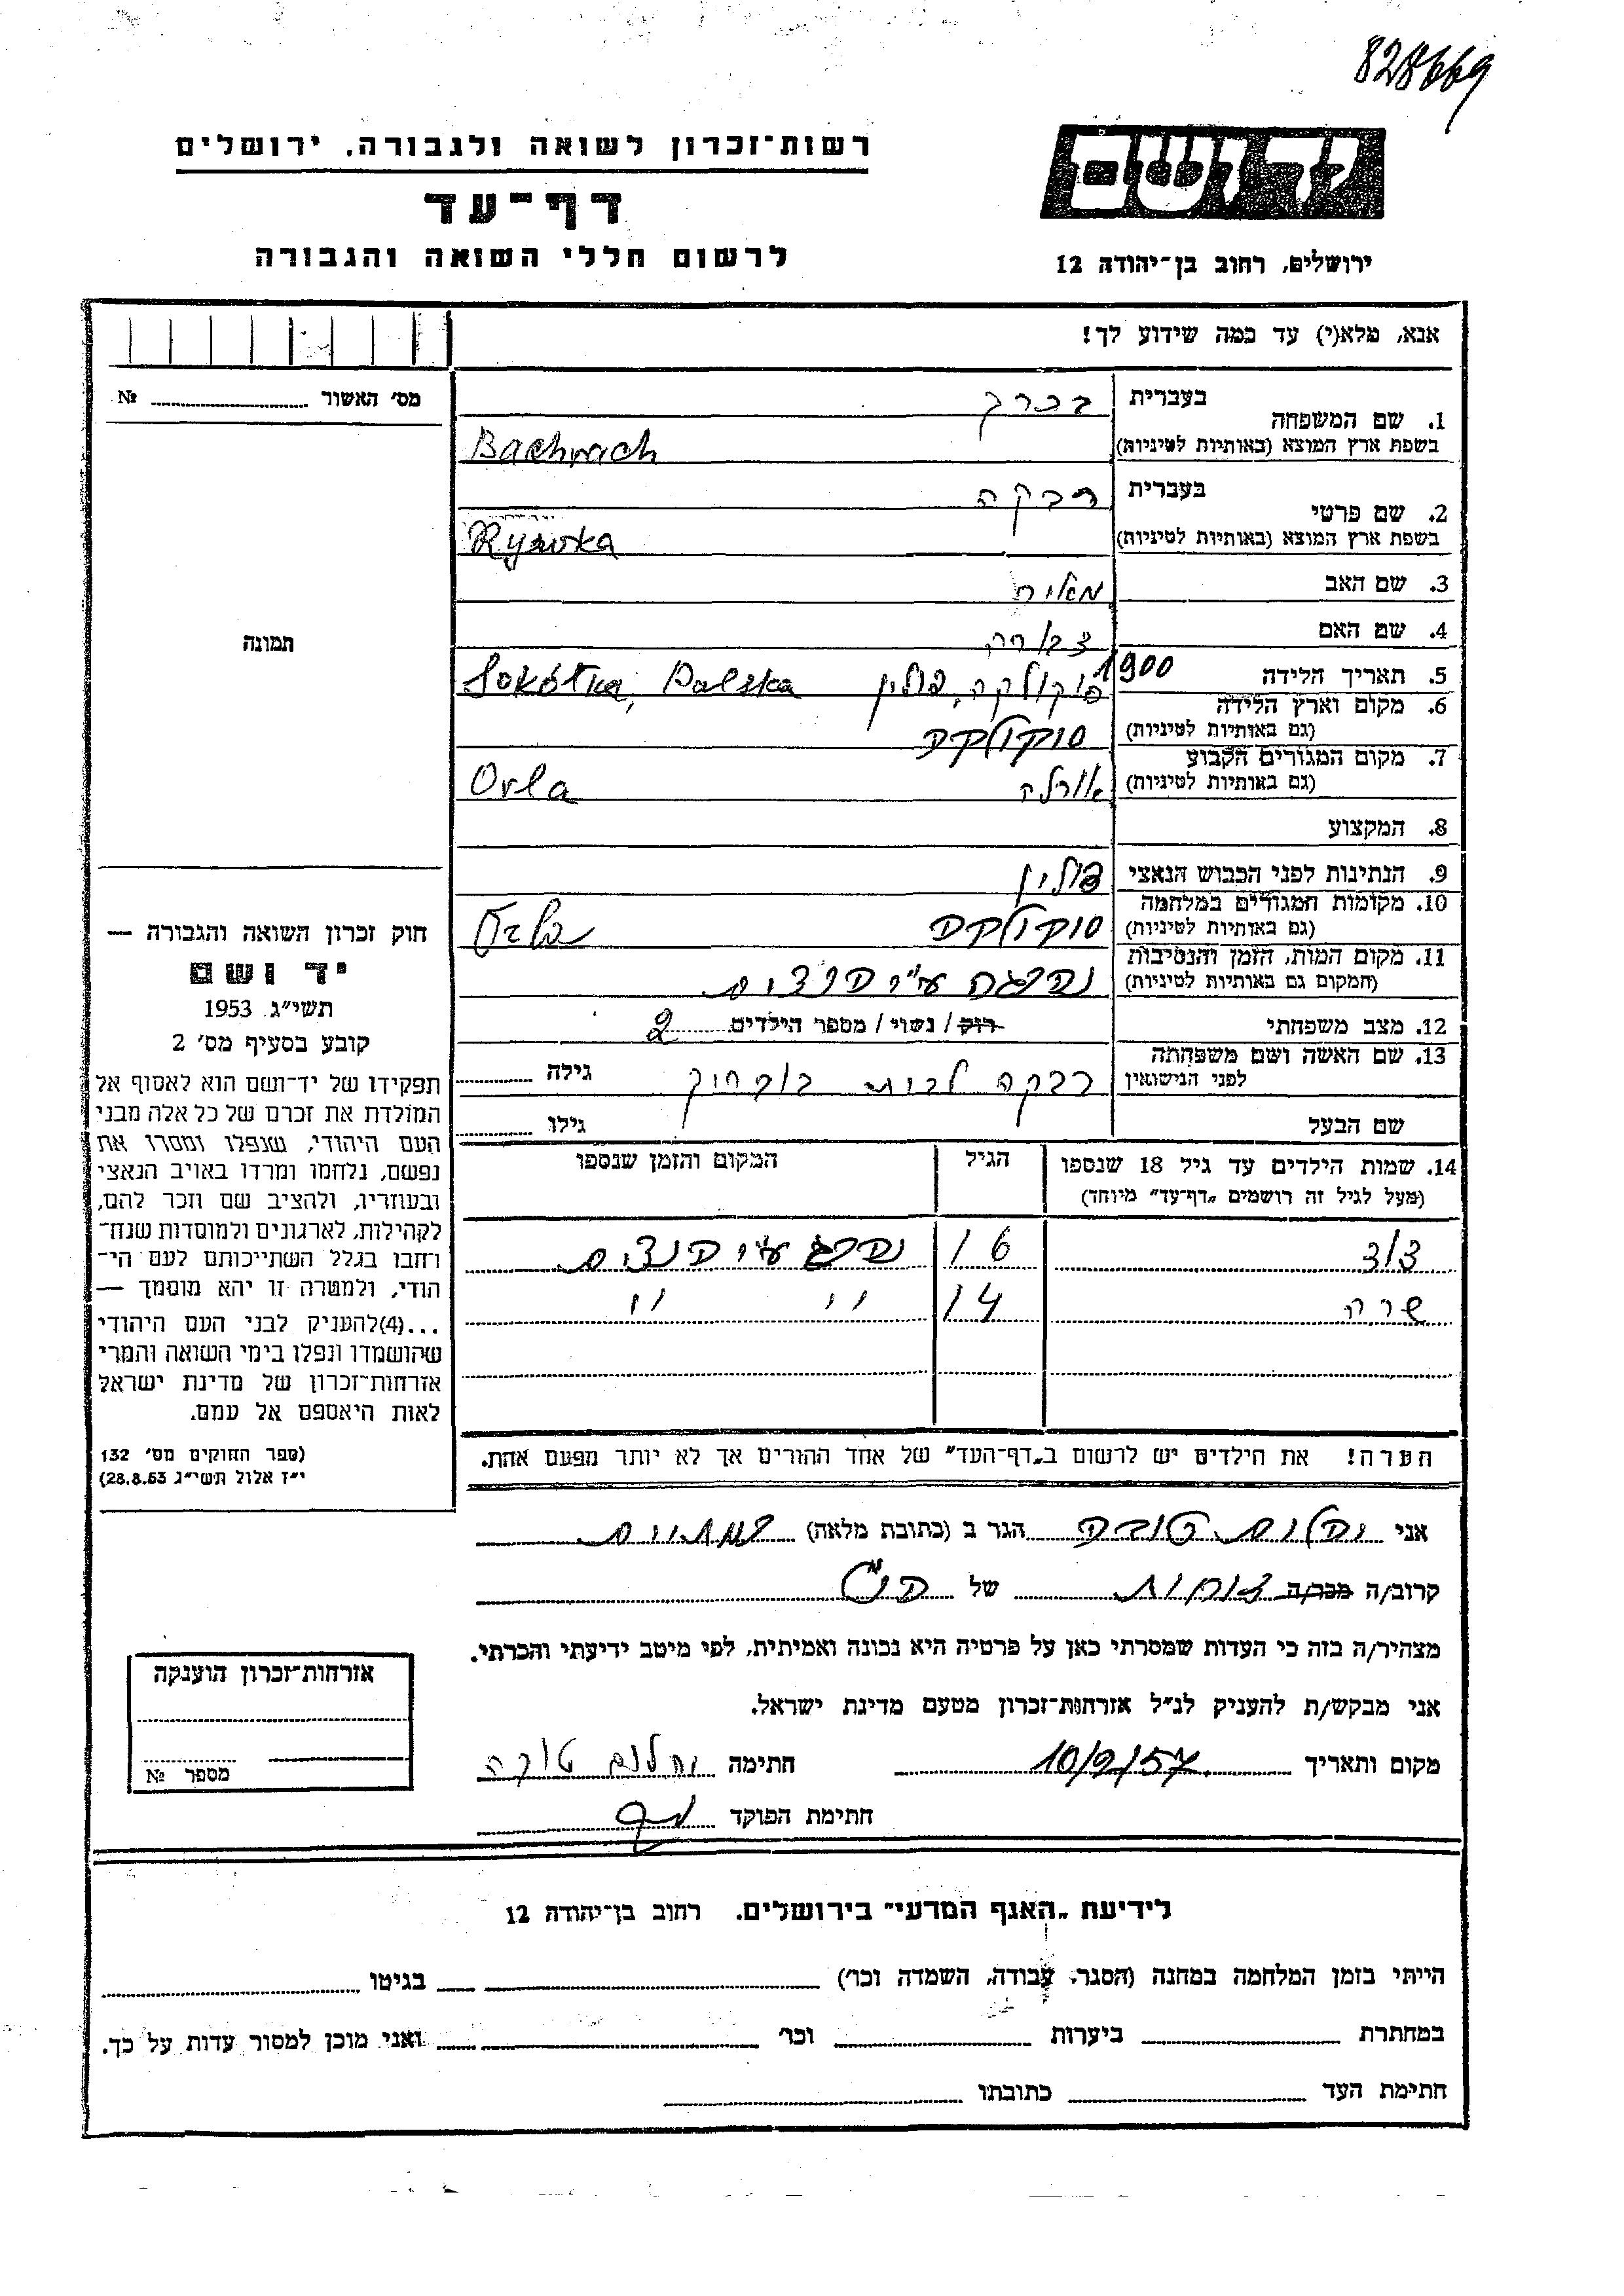 828669
רשות־זכרון לשואה ולגבורה, ירושלים
דף־עד
לרשום חללי השואה והגבורה
יד ושם
ירושלים, רחוב בן־יהודה 12
אנא, מלא(י) עד כמה שידוע לך!
מס׳ האשור № 
1. שם המשפחה בעברית בכרך
בשפת ארץ המוצא (באותיות לטיניות) Bachrach
2. שם פרטי בעברית רבקה
בשפת ארץ המוצא (באותיות לטיניות) Rywka
3. שם האב מאיר
4. שם האם
5. תאריך הלידה 1900
6. מקום וארץ הלידה (גם באותיות לטיניות) סוקולקה, פולין Sokółka, Polska
סוקולקה
7. מקום המגורים הקבוע (גם באותיות לטיניות) אורלה Orla
8. המקצוע
9. הנתינות לפני הכבוש הנאצי פולין
10. מקומות המגורים במלחמה (גם באותיות לטיניות) סוקולקה
11. מקום המות, הזמן והנסיבות (המקום גם באותיות לטיניות) נהרגה ע״י הנצים
12. מצב משפחתי רוק / נשוי / מספר הילדים 2
13. שם האשה ושם משפחתה לפני הנישואין רבקה לבית גילה
שם הבעל גילו
14. שמות הילדים עד גיל 18 שנספו הגיל המקום והזמן שנספו
(מעל לגיל זה רושמים „דף־עד״ מיוחד)
16 נהרג ע״י הנצים
שרה 14 ״ ״
הערה! את הילדים יש לרשום ב„דף־העד״ של אחד ההורים אך לא יותר מפעם אחת.
תמונה
חוק זכרון השואה והגבורה —
יד ושם
תשי״ג 1953
קובע בסעיף מס׳ 2
תפקידו של יד־ושם הוא לאסוף אל
המולדת את זכרם של כל אלה מבני
העם היהודי, שנפלו ומסרו את
נפשם, נלחמו ומרדו באויב הנאצי
ובעוזריו, ולהציב שם וזכר להם,
לקהילות, לארגונים ולמוסדות שנח־
רחבו בגלל השתייכותם לעם הי־
הודי, ולמטרה זו יהא מוסמך —
...(4)להעניק לבני העם היהודי
שהושמדו ונפלו בימי השואה והמרי
אזרחות־זכרון של מדינת ישראל
לאות היאספם אל עמם.
(ספר החוקים מס׳ 132
י״ז אלול תשי״ג 28.8.53)
אני טובה הגר ב (כתובת מלאה)
קרוב/ה מכר/ה של הנ״ל
מצהיר/ה בזה כי העדות שמסרתי כאן על פרטיה היא נכונה ואמיתית, לפי מיטב ידיעתי והכרתי.
אני מבקש/ת להעניק לנ״ל אזרחות־זכרון מטעם מדינת ישראל.
מקום ותאריך 10/2/57 חתימה טובה
חתימת הפוקד
אזרחות־זכרון הוענקה
מספר №
לידיעת „האגף המדעי״ בירושלים. רחוב בן־יהודה 12
הייתי בזמן המלחמה במחנה (הסגר, עבודה, השמדה וכר׳) בגיטו
במחתרת ביערות וכר׳ ואני מוכן למסור עדות על כך.
חתימת העד כתובתו